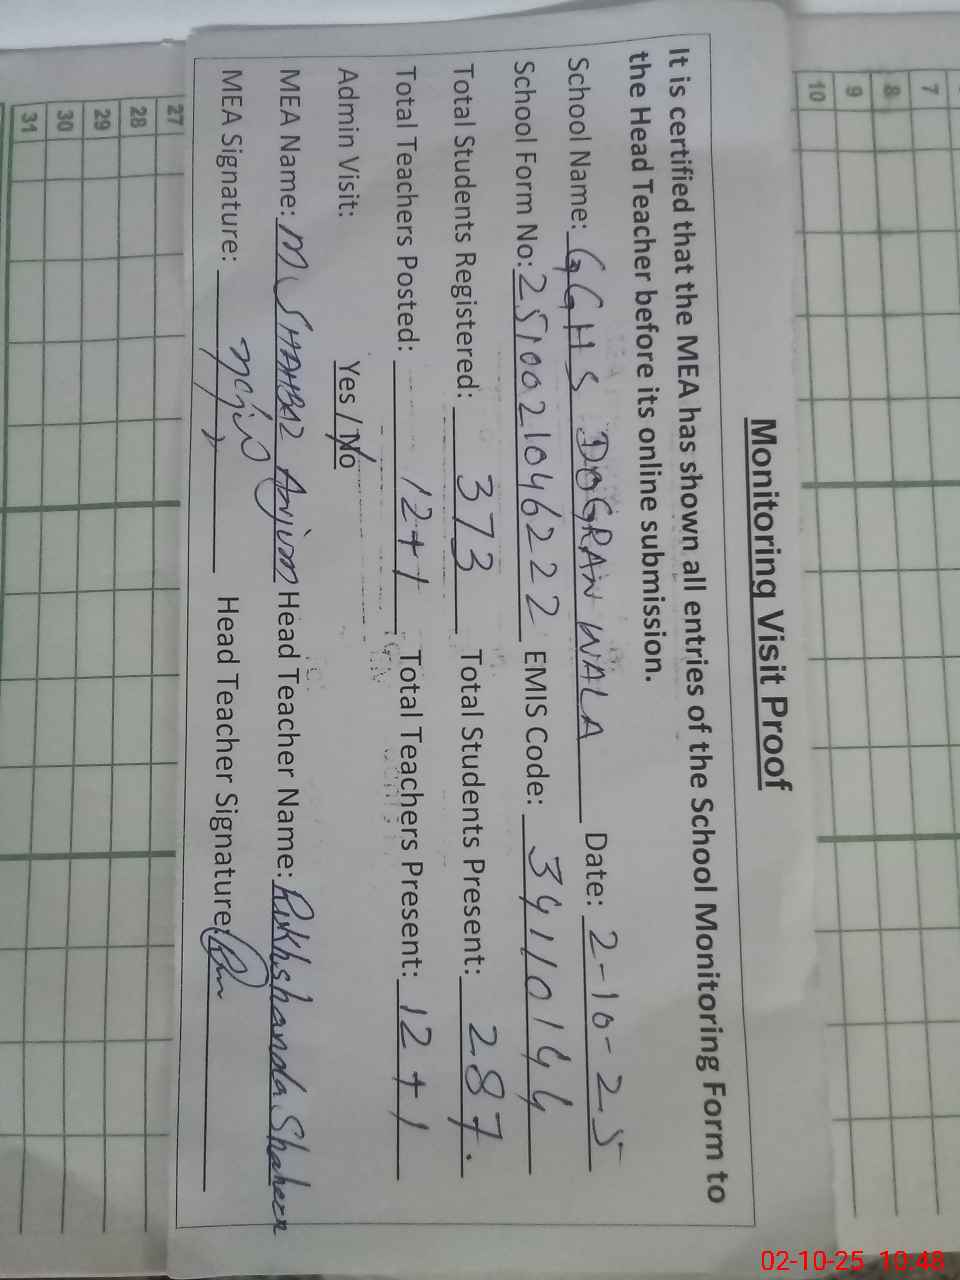 Monitoring Visit Proof
It is certified that the MEA has shown all entries of the School Monitoring Form to
the Head Teacher before its online submission.
School Name: GGHS DOGRAN WALA Date: 2-10-25
School Form No: 2510021046222 EMIS Code: 34110144
Total Students Registered: 373 Total Students Present: 287.
Total Teachers Posted: 12+1 Total Teachers Present: 12+1
Admin Visit: Yes / No
MEA Name: M SHAHBAZ Anjum Head Teacher Name: Rukhshanda Shaheen
MEA Signature: Head Teacher Signature:
7
8
9
10
27
28
29
30
31
02-10-25 10:48